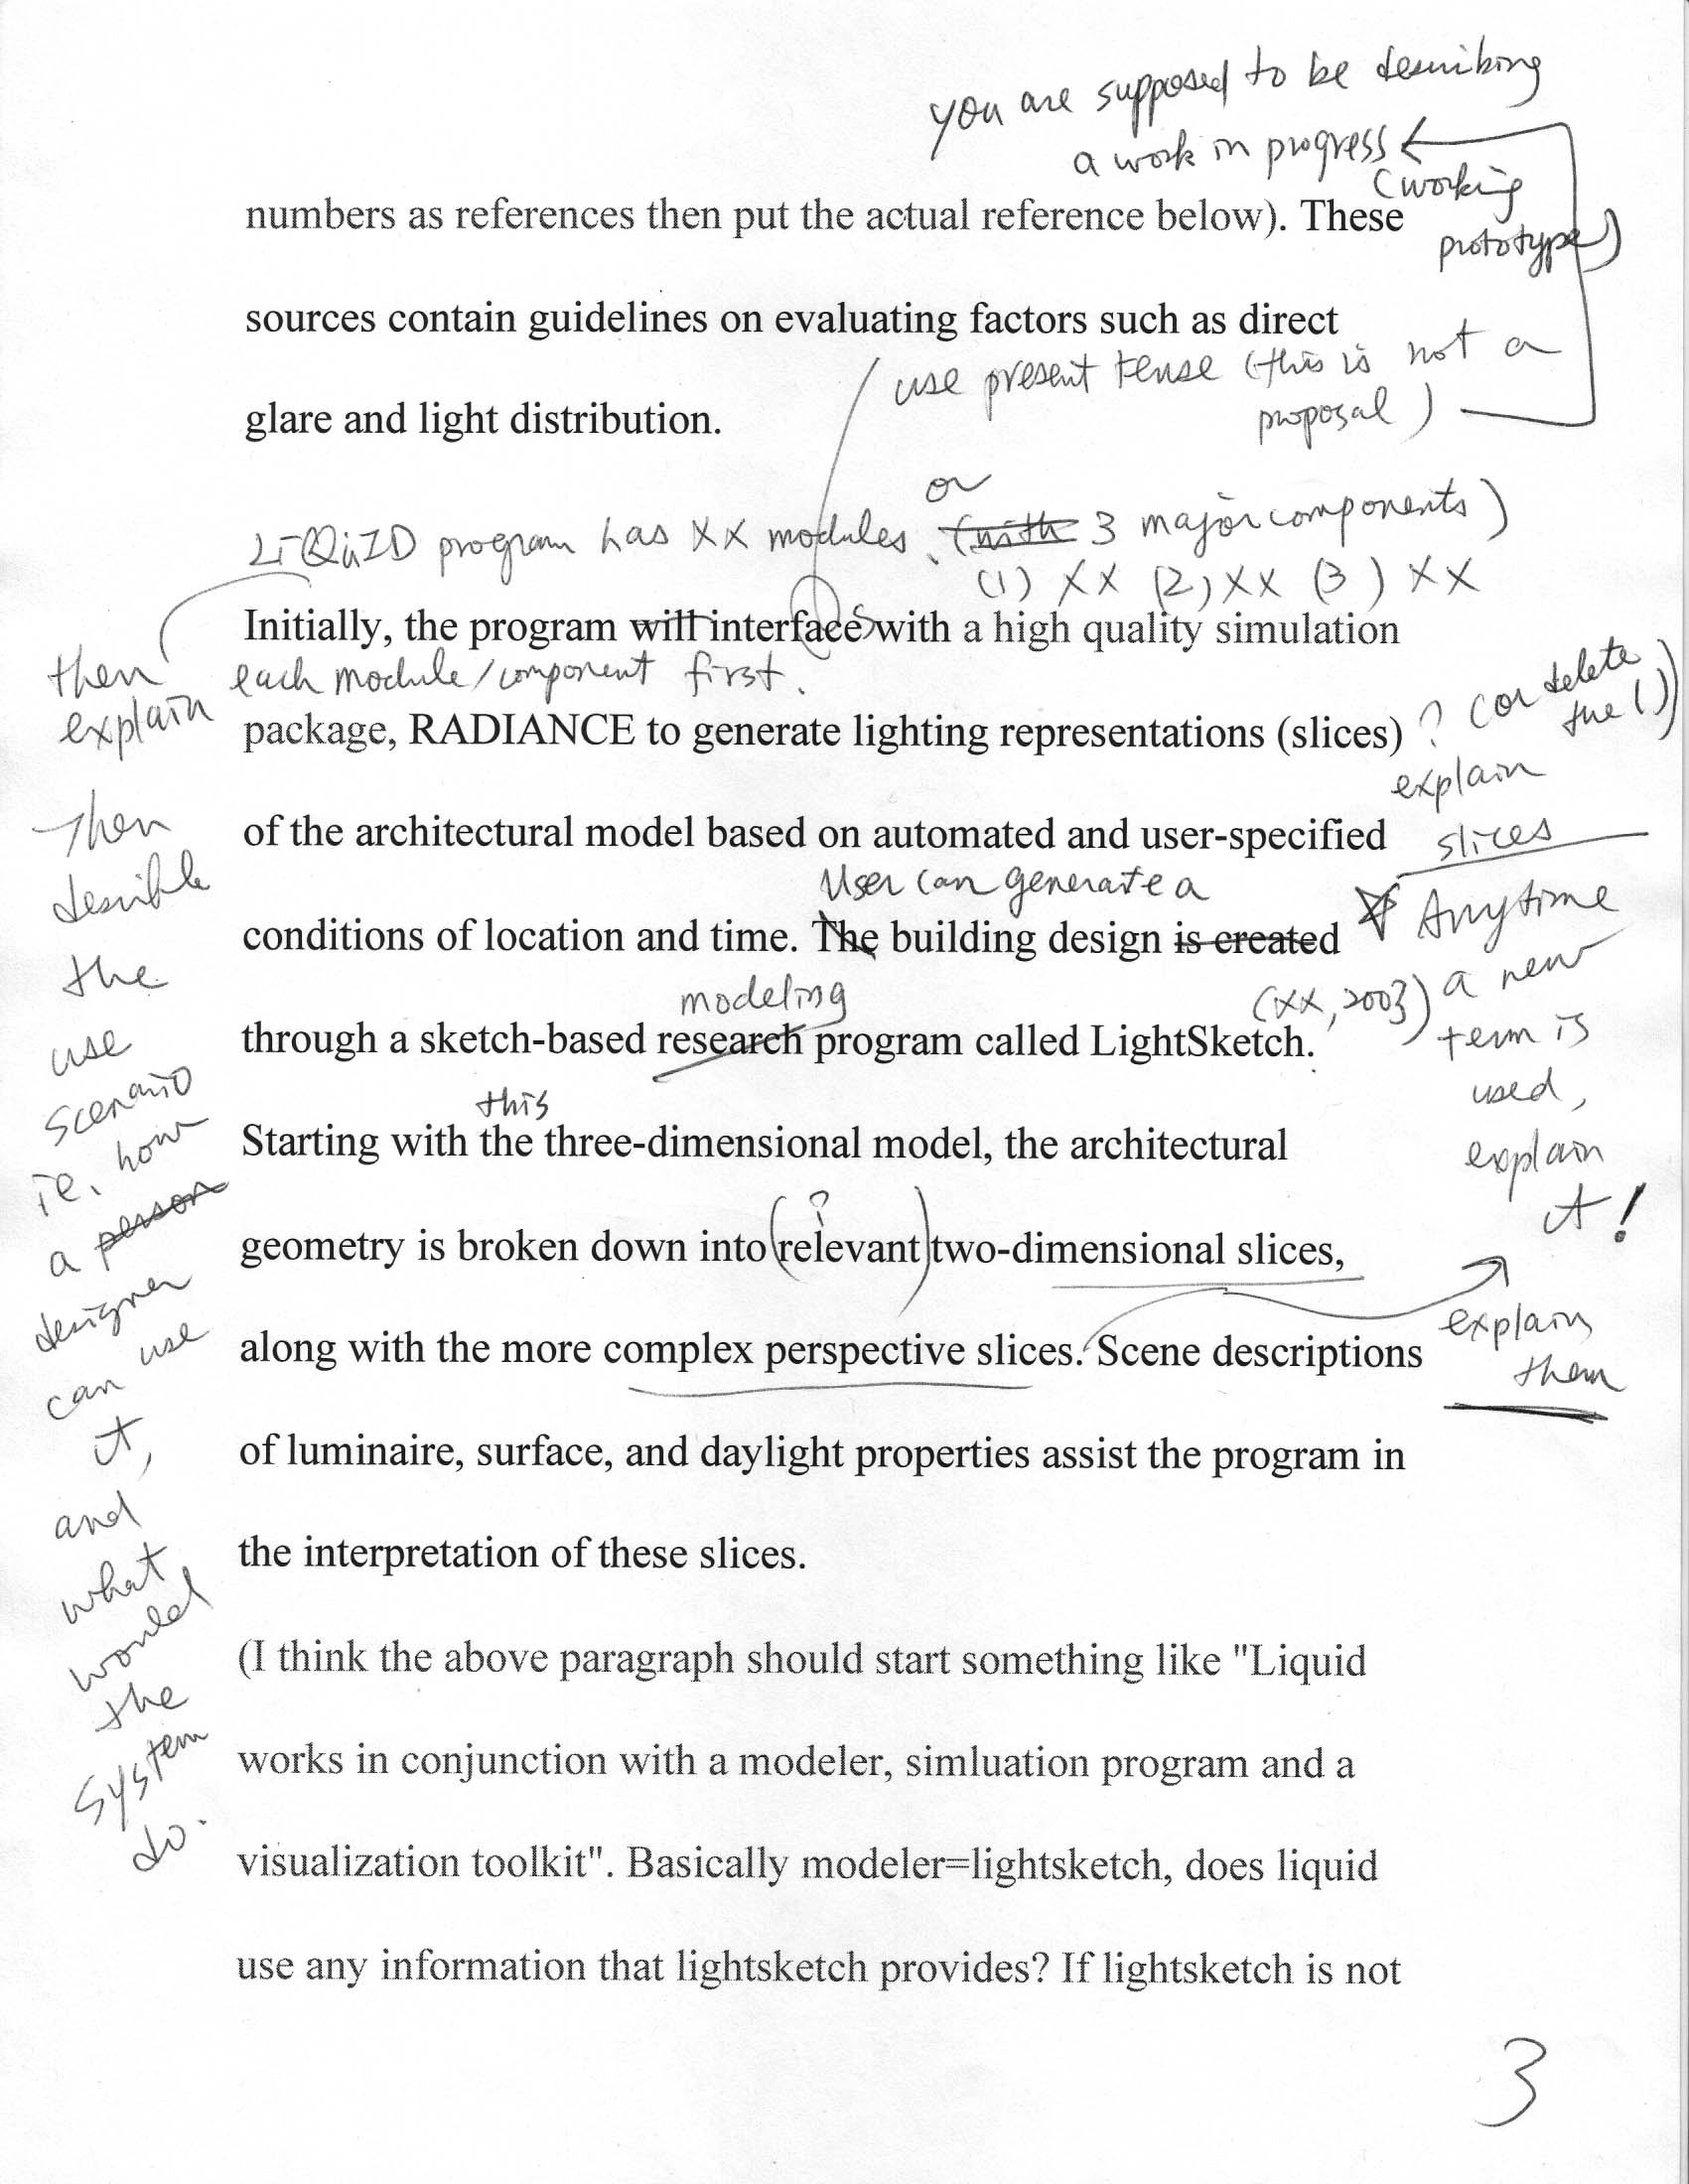 you are supposed to be describing
a work in progress
(working
prototype)
numbers as references then put the actual reference below). These
sources contain guidelines on evaluating factors such as direct
use present tense (this is not a
proposal)
glare and light distribution.
or
LiQuID program has XX modules. (with 3 major components)
(1) XX (2) XX (3) XX
Initially, the program will interfaces with a high quality simulation
then
explain
each module/component first.
package, RADIANCE to generate lighting representations (slices)
? (or delete
the ( ))
explain
slices
of the architectural model based on automated and user-specified
User can generate a
conditions of location and time. The building design is created
modeling
(XX, 2003)
through a sketch-based research program called LightSketch.
Anytime
a new
term is
used,
explain
it!
this
Starting with the three-dimensional model, the architectural
?
geometry is broken down into (relevant) two-dimensional slices,
along with the more complex perspective slices. Scene descriptions
explain
them
of luminaire, surface, and daylight properties assist the program in
the interpretation of these slices.
Then
describe
the
use
scenario
ie. how
a person
designer
can use
it,
and
what
would
the
system
do.
(I think the above paragraph should start something like "Liquid
works in conjunction with a modeler, simluation program and a
visualization toolkit". Basically modeler=lightsketch, does liquid
use any information that lightsketch provides? If lightsketch is not
3